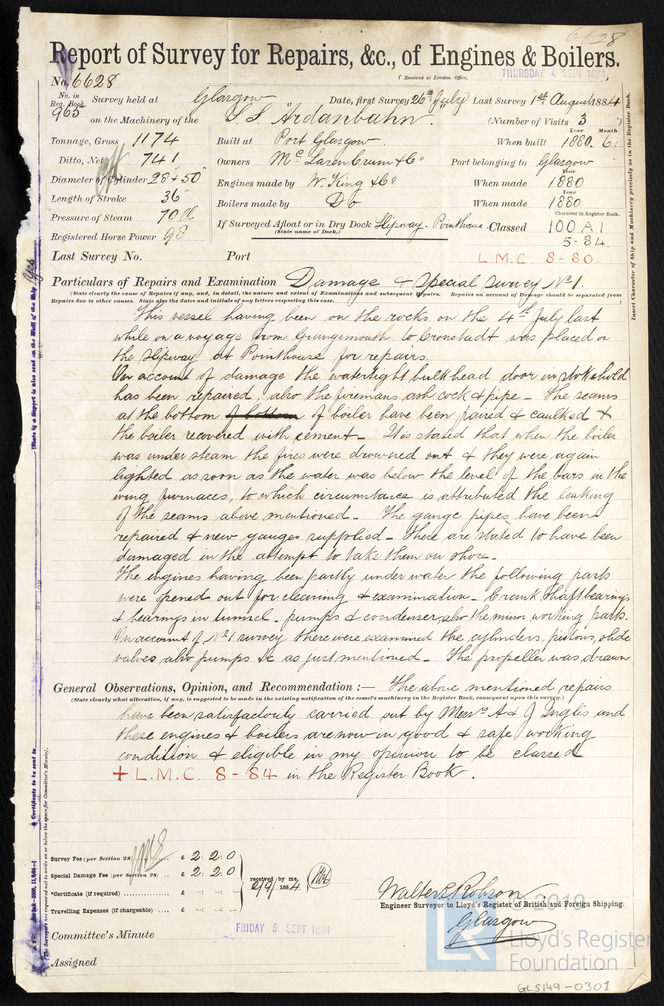 6628
Report of Survey for Repairs, &c., of Engines & Boilers.
(Received at London Office,
THURSDAY 4 SEPT 1884
No. 6628
No. in Reg. Book 965
Survey held at Glasgow Date, first Survey 26th July Last Survey 1st August 1884
on the Machinery of the S.S. "Ardanbahn". (Number of Visits 3)
Tonnage, Gross 1174 Built at Port Glasgow. When built Year 1880. Month 6.
Ditto, Net 741 Owners McLaren Crum & Co Port belonging to Glasgow
Diameter of Cylinder 28 + 50" Engines made by W. King & Co When made Year 1880
Length of Stroke 36" Boilers made by Do When made Year 1880
Pressure of Steam 70 lb If Surveyed Afloat or in Dry Dock Slipway - Pointhouse. Classed Character in Register Book. 100 A1
(State name of Dock.)
5-84.
Registered Horse Power 98
Last Survey No. Port L.M.C. 8-80.
Particulars of Repairs and Examination Damage & Special Survey No 1.
(State clearly the cause of Repairs if any, and, in detail, the nature and extent of Examinations and subsequent Repairs. Repairs on account of Damage should be separated from
Repairs due to other causes. State also the dates and initials of any letters respecting this case.)
This vessel having been on the rocks on the 4th July last
while on a voyage from Grangemouth to Cronstadt was placed on
the slipway at Pointhouse for repairs.
On account of damage the watertight bulkhead door in stokehold
has been repaired, also the firemans ash cock & pipe - The seams
at the bottom of bottom of boiler have been paired & caulked &
the boiler recovered with cement - It is stated that when the boiler
was under steam the fires were drowned out & they were again
lighted as soon as the water was below the level of the bars in the
wing furnaces, to which circumstance is attributed the leaking
of the seams above mentioned - The gauge pipes have been
repaired & new gauges supplied - These are stated to have been
damaged in the attempt to take them on shore -
The engines having been partly under water the following parts
were opened out for cleaning & examination - Crank shaft bearings
& bearings in tunnel - pumps & condenser, also the minor working parts.
On account of No 1 survey there were examined the cylinders, pistons, slide
valves also pumps &c as just mentioned - The propeller was drawn
General Observations, Opinion, and Recommendation :— The above mentioned repairs
(State clearly what alteration, if any, is suggested to be made in the existing notification of the vessel's machinery in the Register Book, consequent upon this survey.)
have been satisfactorily carried out by Messrs A & J Inglis and
these engines & boilers are now in good & safe working
condition & eligible in my opinion to be classed
+ L.M.C. 8-84 in the Register Book.
Survey Fee (per Section 28) £ 2: 2: 0
Special Damage Fee (per Section 28) £ 2: 2: 0
*Certificate (if required) £
Travelling Expenses (if chargeable) £
received by me, 2/9/1884
Walter L Robson
Engineer Surveyor to Lloyd's Register of British and Foreign Shipping.
Glasgow
Committee's Minute FRIDAY 5 SEPT 1884
Assigned
Insert Character of Ship and Machinery precisely as in the Register Book.
Lloyd's Register
Foundation
GLS149-0301